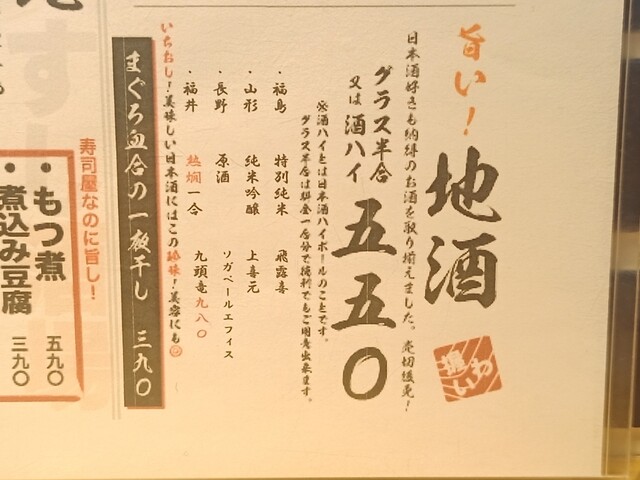 旨い！
地酒
日本酒好きも納得のお酒を取り揃えました。売切御免！
グラス半合
又は 酒ハイ
五五〇
※酒ハイとは日本酒ハイボールのことです。
グラス半合は料金一合分で徳利でもご用意出来ます。
・福島 特別純米 飛露喜
・山形 純米吟醸 上喜元
・長野 原酒 ソガペールエフィス
・福井 熱燗一合 九頭竜 九八〇
いちおし！美味しい日本酒にはこの珍味！美容にも
まぐろ血合の一夜干し 三九〇
寿司屋なのに旨し！
・もつ煮 五九〇
・煮込み豆腐 三九〇